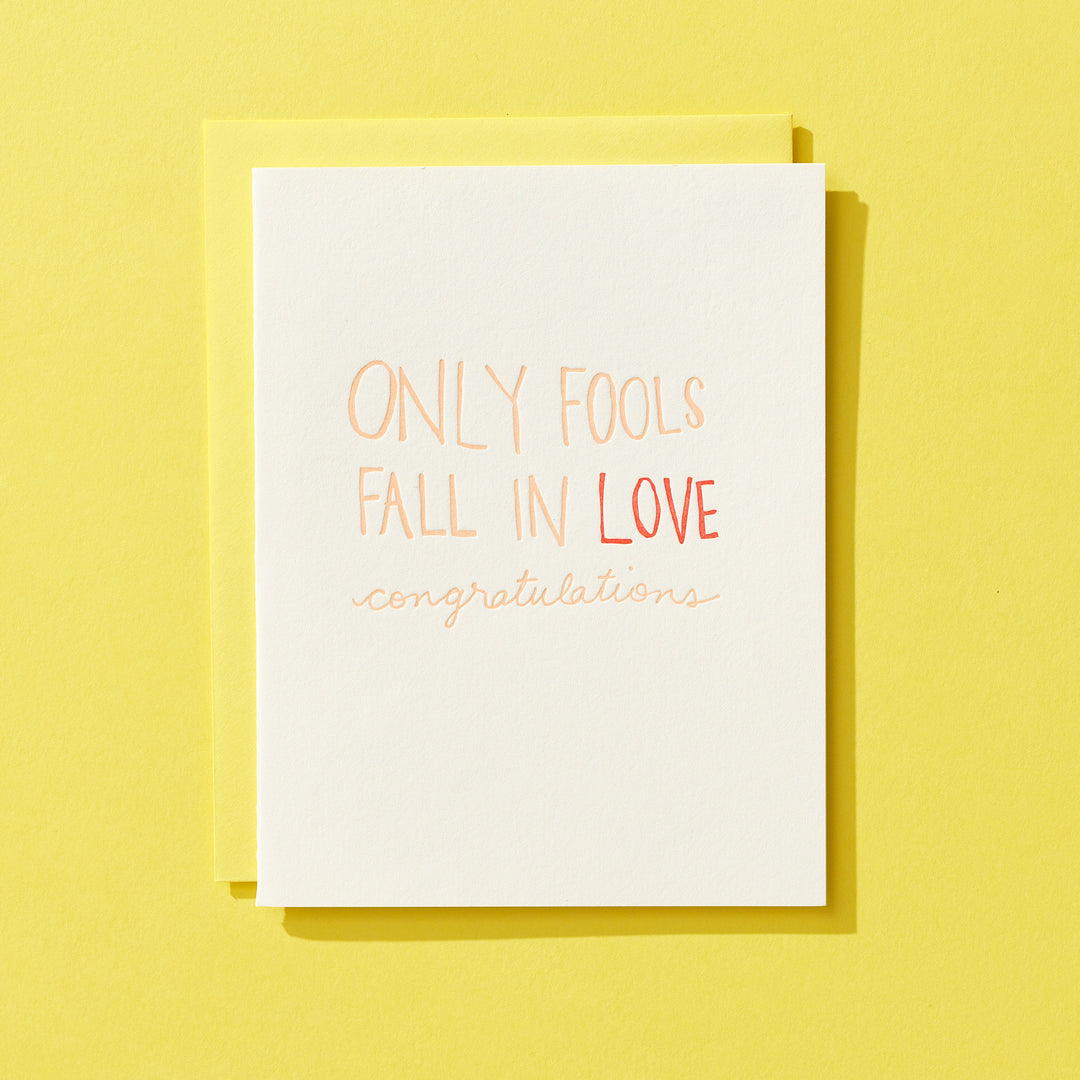 ONLY FOOLS
FALL IN LOVE
congratulations